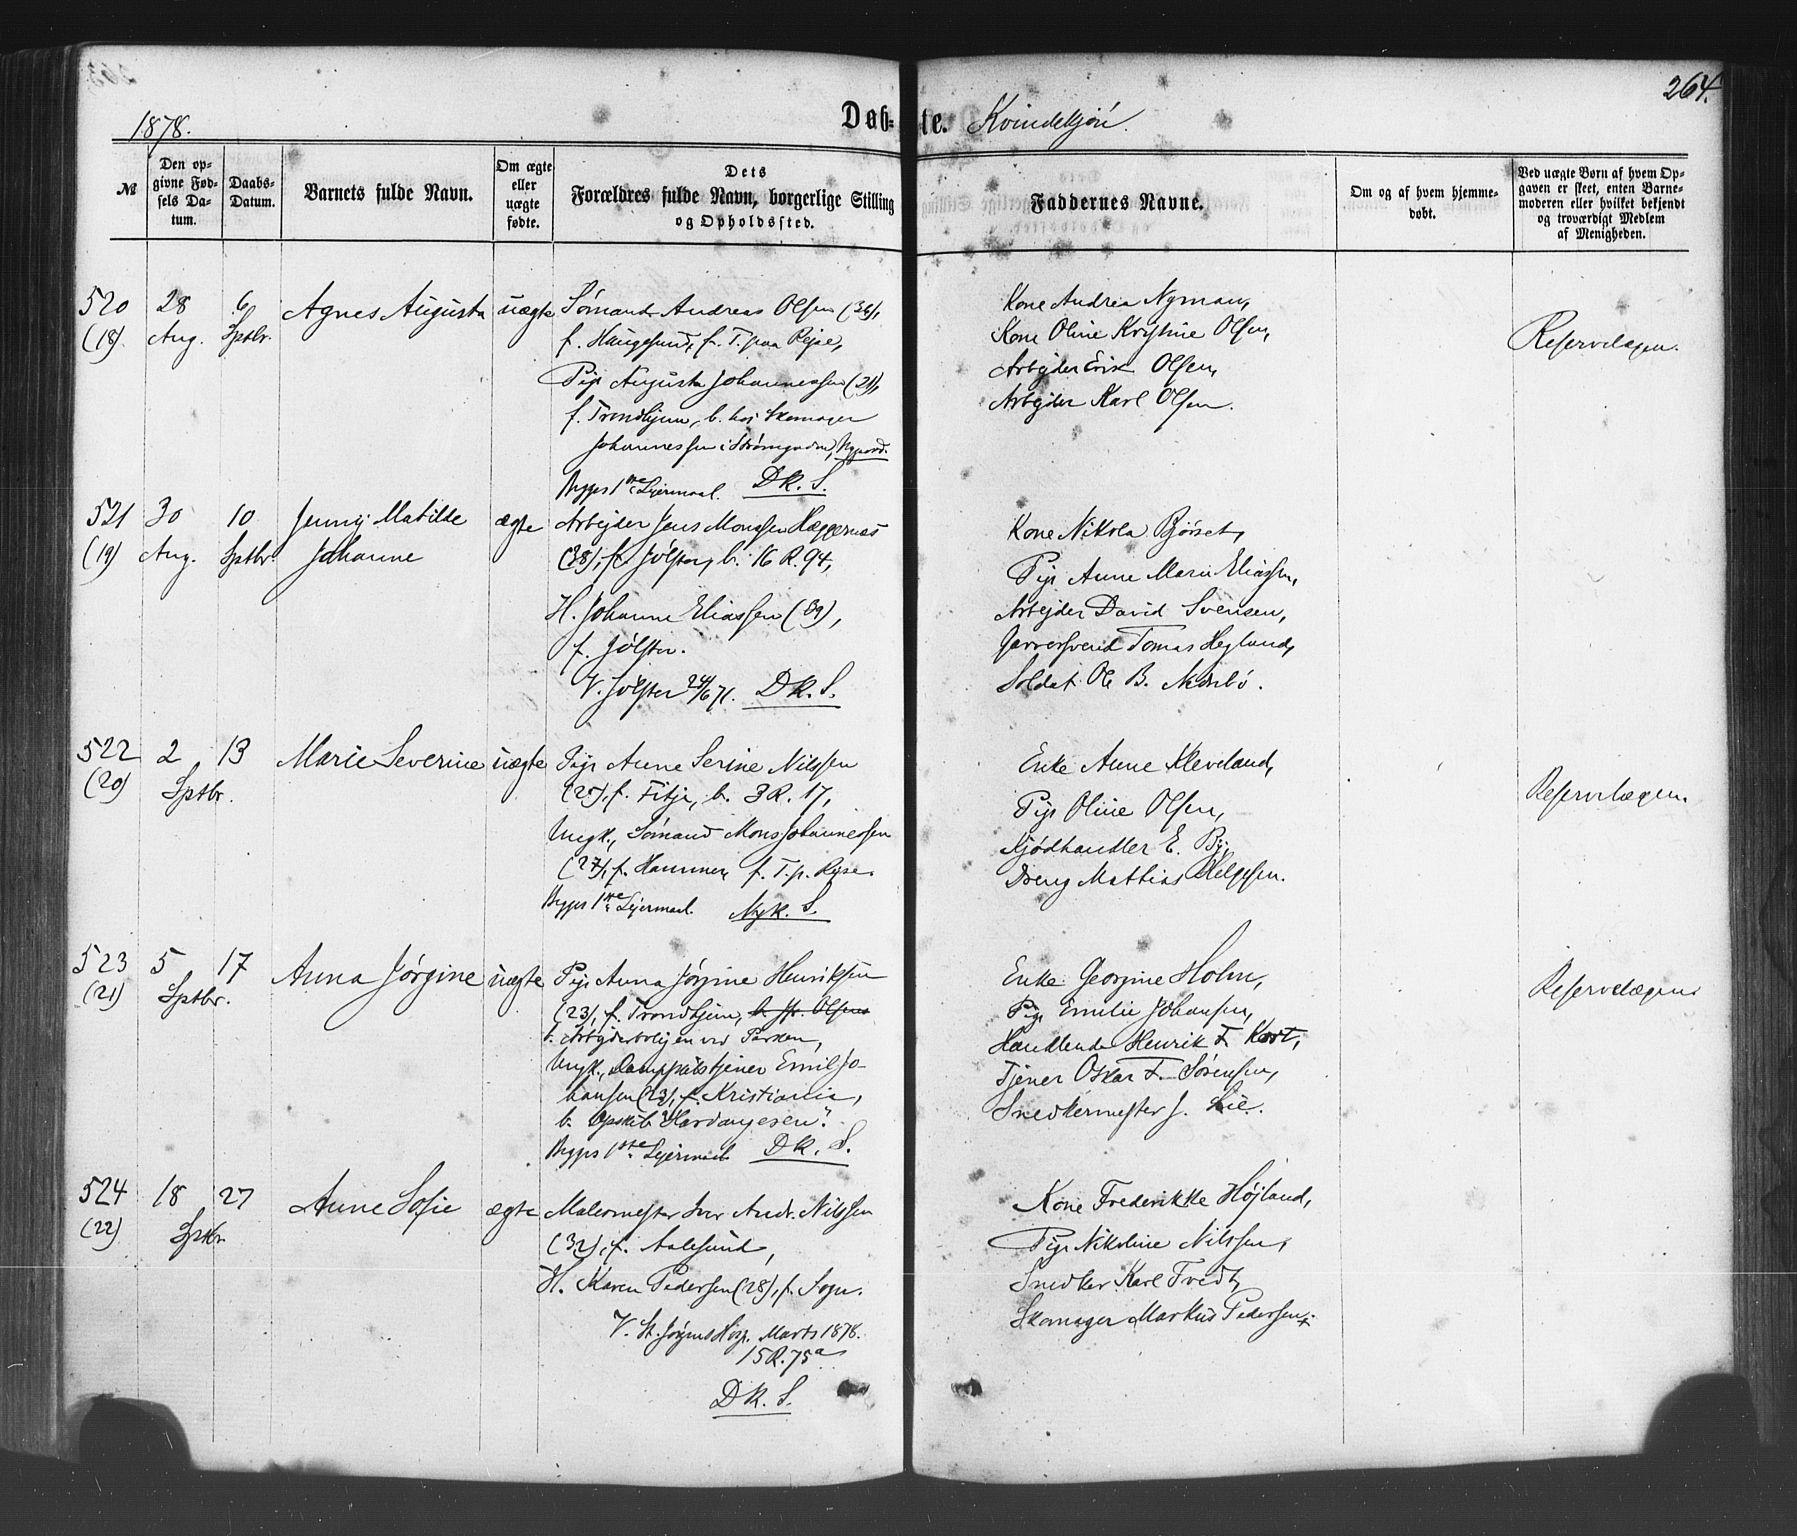 1878.
Døb-
te.
Kvindekjön.
264.
№
Den opgivne Fødsels Datum.
Daabs-Datum.
Barnets fulde Navn.
Om ægte eller uægte fødte.
Dets Forældres fulde Navn, borgerlige Stilling og Opholdssted.
Faddernes Navne.
Om og af hvem hjemmedøbt.
Ved uægte Børn af hvem Opgaven er skeet, enten Barnemoderen eller hvilket bekjendt og troværdigt Medlem af Menigheden.
520
(18)
28
Aug.
6
Sptbr.
Agnes Augusta
uægte
Sömand Andreas Olsen (36),
f. Haugesund, f. T. paa Rejse,
Pige Augusta Johannessen (21),
f. Trondhjem, b. hos Skomager
Johannessen i Strömgaden,
Begges 1ste Lejermaal. DK. S.
Kone Andrea Nyman,
Kone Oline Kristine Olsen,
Arbejder Erik Olsen,
Arbejder Karl Olsen.
Reservelægen.
521
(19)
30
Aug.
10
Sptbr.
Jenny Matilde
Johanne
ægte
Arbejder Jens Monssen Hæggernæs
(38), f. Jölster, b. 16 R. 94,
H. Johanne Eliassen (39),
f. Jölster.
V. Jölster 24/6 71. DK. S.
Kone Nikola Björset,
Pige Anne Marie Eliassen,
Arbejder David Svensen,
Garversvend Tomas Hegland,
Soldat Ole B.
522
(20)
2
Sptbr.
13
Marie Severine
uægte
Pige Anne Serine Nilssen
f. Fitje, b. 3 R. 17,
Ungk., Sömand Mons Johannessen
(27), f. Hammer, f. T. p. Rejse.
Begges 1ste Lejermaal. Nyk. S.
Enke Anne Kleveland,
Pige Oline Olsen,
Kjödhandler E. By,
Dreng Mathias Helgesen.
Reservelægen.
523
(21)
5
Sptbr.
17
Anna Jörgine
uægte
Pige Anna Jörgine Henriksen
(23), f. Trondhjem, b. Olsens
b. Arbejderboligen ved Parken,
Ungk., Dampskibstjener Emil Jo-
hansen (23), f. Kristiania,
b. Dpskib "Hardangeren".
Begges 1ste Lejermaal DK. S.
Enke Georgine Holm,
Pige Emilie Johansen,
Handlende Henrik F. Kort,
Tjener Oskar F. Sörensen,
Snedkermester J. Lie.
Reservelægen
524
(22)
18
Sptbr.
27
Anne Sofie
ægte
Malermester Iver Andr. Nilssen
(32), f. Aalesund,
H. Karen Pedersen (28), f. Sogn.
V. St. Jörgens Hosp. Marts 1878.
15 R. 75 a
DK. S.
Kone Frederikke Höjland,
Pige Nikoline Nilssen,
Snedker Karl Tvedt,
Skomager Markus Pedersen.